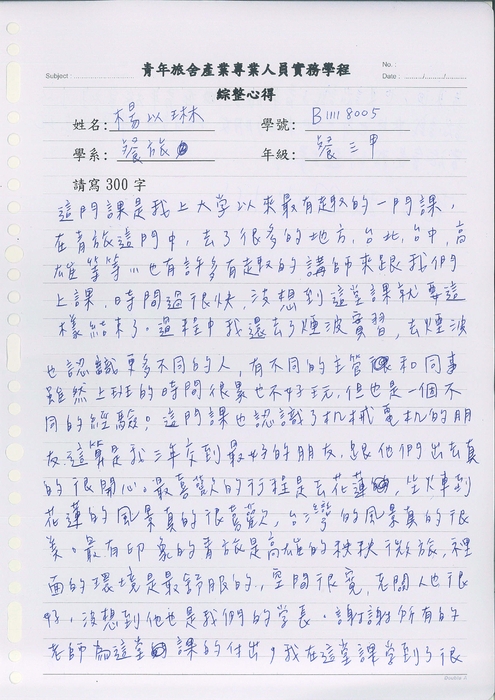 青年旅舍產業專業人員實務學程
No. :
Subject :
Date : ......./......./.......
綜整心得
姓名: 楊以琳 學號: B11118005
學系: 餐旅 年級: 餐三甲
請寫 300 字
這門課是我上大学以來最有趣的一門課,
在青旅這門中,去了很多的地方,台北,台中,高
雄等等,也有許多有趣的講師來跟我們
上課,時間過很快,沒想到這堂課就要這
樣結束了。過程中我還去了煙波實習,去煙波
也認識更多不同的人,有不同的主管和同事
雖然上班的時間很累也不好玩,但也是一個不
同的經驗。這門課也認識了机械電机的朋
友這算是我三年交到最好的朋友,跟他們出去真
的很開心。最喜歡的行程是去花蓮,坐火車到
花蓮的風景真的很喜歡,台灣的風景真的很
美。最有印象的青旅是高雄的秧秧微旅,裡
面的環境是最舒服的,空間很寬,老闆人也很
好,沒想到他也是我們的学長。謝謝所有的
老師為這堂課的付出,我在這堂課学到了很